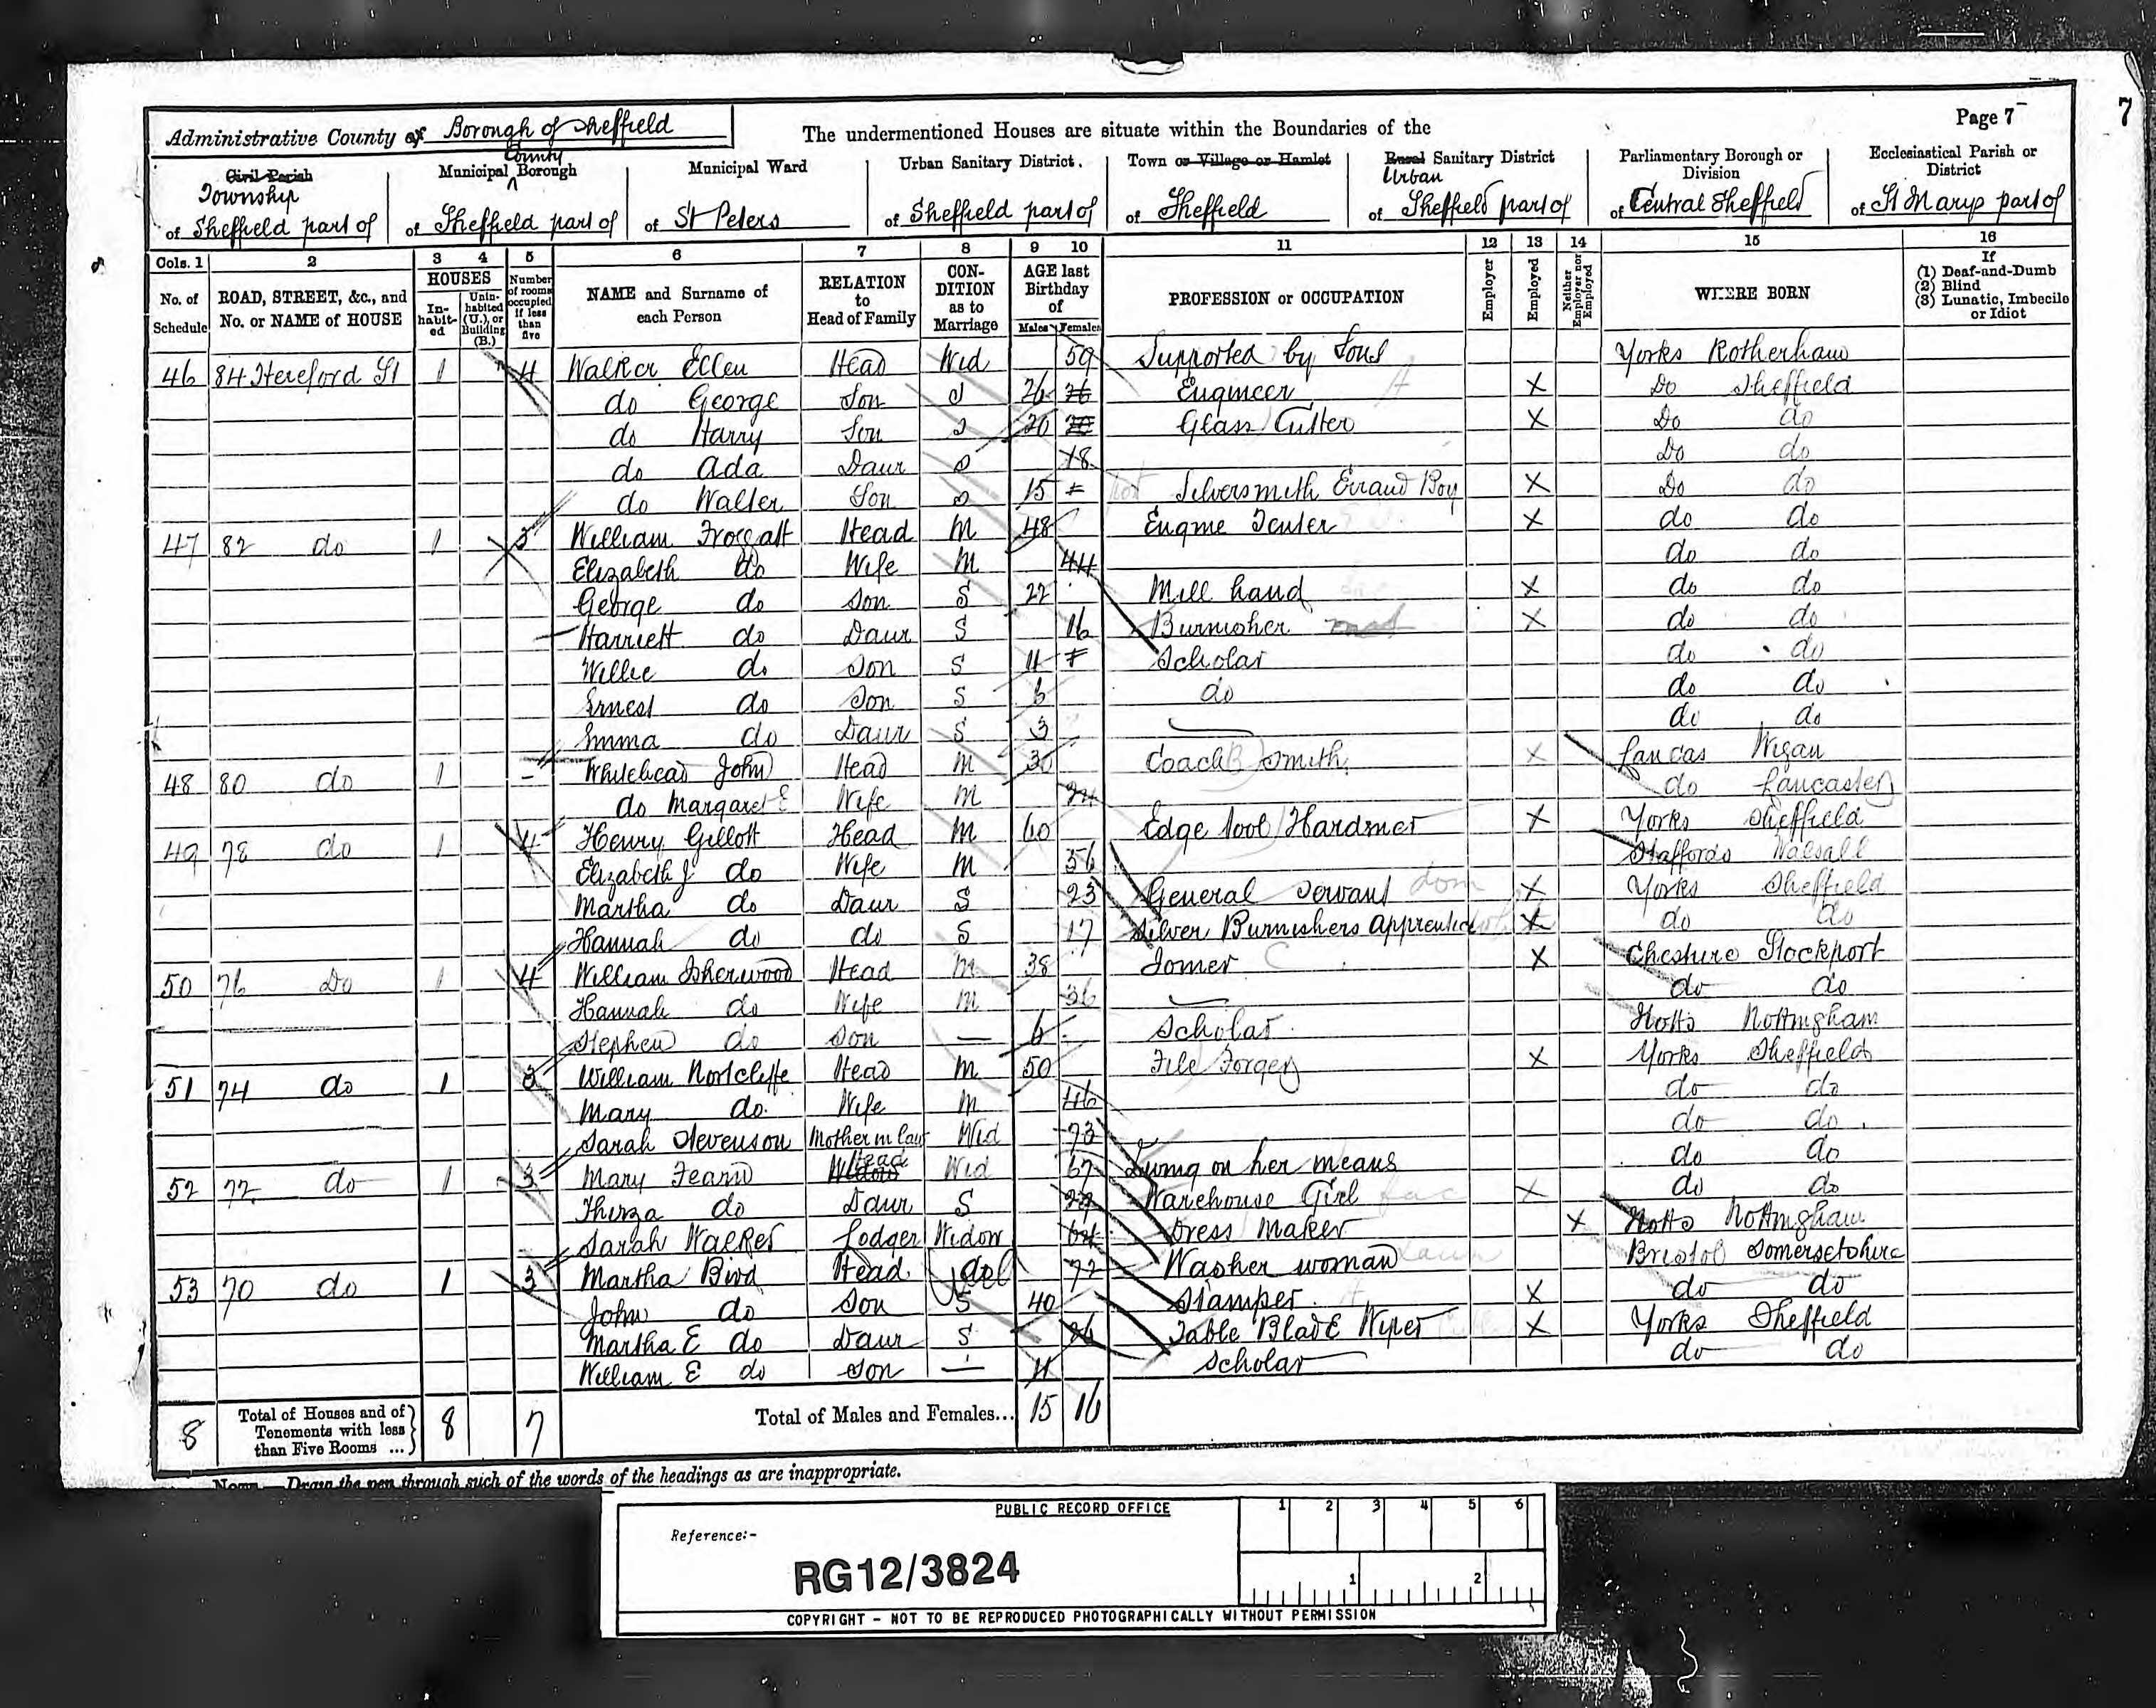 Page 7
7
Administrative County of Borough of Sheffield
The undermentioned Houses are situate within the Boundaries of the
Civil Parish Township of Sheffield part of
Municipal County Borough of Sheffield part of
Municipal Ward of St Peters
Urban Sanitary District of Sheffield part of
Town or Village or Hamlet of Sheffield
Rural Urban Sanitary District of Sheffield part of
Parliamentary Borough or Division of Central Sheffield
Ecclesiastical Parish or District of St Marys part of
Cols. 1 2 3 4 5 6 7 8 9 10 11 12 13 14 15 16
No. of Schedule
ROAD, STREET, &c., and No. or NAME of HOUSE
HOUSES
In-habit-ed
Unin-habited (U.), or Building (B.)
Number of rooms occupied if less than five
NAME and Surname of each Person
RELATION to Head of Family
CON-DITION as to Marriage
AGE last Birthday of
Males Females
PROFESSION or OCCUPATION
Employer
Employed
Neither Employer nor Employed
WHERE BORN
If
(1) Deaf-and-Dumb
(2) Blind
(3) Lunatic, Imbecile or Idiot
46 84 Hereford St 1 4 Walker Ellen Head Wid 59 Supported by Sons Yorks Rotherham
do George Son S 26 26 Engineer X Do Sheffield
do Harry Son S 20 20 Glass Cutter X Do do
do Ada Daur S 18 Do do
do Walter Son S 15 Silversmith Errand Boy X Do do
47 82 do 1 3 William Froggatt Head M 48 Engine Tenter X do do
Elizabeth do Wife M 44 do do
George do Son S 22 Mill hand X do do
Harriett do Daur S 16 Burnisher X do do
Willie do Son S 11 Scholar do do
Ernest do Son S 6 do do do
Emma do Daur S 3 do do
48 80 do 1 - Whitehead John Head M 30 Coach Smith X Lancas Wigan
do Margaret E Wife M 24 do Lancaster
49 78 do 1 4 Henry Gillott Head M 60 Edge Tool Hardner X Yorks Sheffield
Elizabeth J do Wife M 56 Staffords Walsall
Martha do Daur S 23 General Servant dom X Yorks Sheffield
Hannah do do S 17 Silver Burnishers apprentice X do do
50 76 Do 1 4 William Isherwood Head M 38 Joiner X Cheshire Stockport
Hannah do Wife M 36 do do
Stephen do Son — 6 Scholar Notts Nottingham
51 74 do 1 3 William Nortcliffe Head M 50 File Forger X Yorks Sheffield
Mary do Wife M 46 do do
Sarah Stevenson Mother in law Wid 73 do do
52 72 do 1 3 Mary Fearn Head Wid 67 Living on her means do do
Thirza do Daur S Warehouse Girl X do do
Sarah Walker Lodger Widow 64 Dress Maker X Notts Nottingham
53 70 do 1 3 Martha Bird Head 72 Washer woman Bristol Somersetshire
John do Son S 40 Stamper X do do
Martha E do Daur S 26 Table Blade Wiper X Yorks Sheffield
William E do Son — 11 Scholar do do
8 Total of Houses and of Tenements with less than Five Rooms ... 8 7 Total of Males and Females... 15 16
Note. Draw the pen through such of the words of the headings as are inappropriate.
PUBLIC RECORD OFFICE
1 2 3 4 5 6
Reference:-
RG12/3824
1 2
COPYRIGHT - NOT TO BE REPRODUCED PHOTOGRAPHICALLY WITHOUT PERMISSION